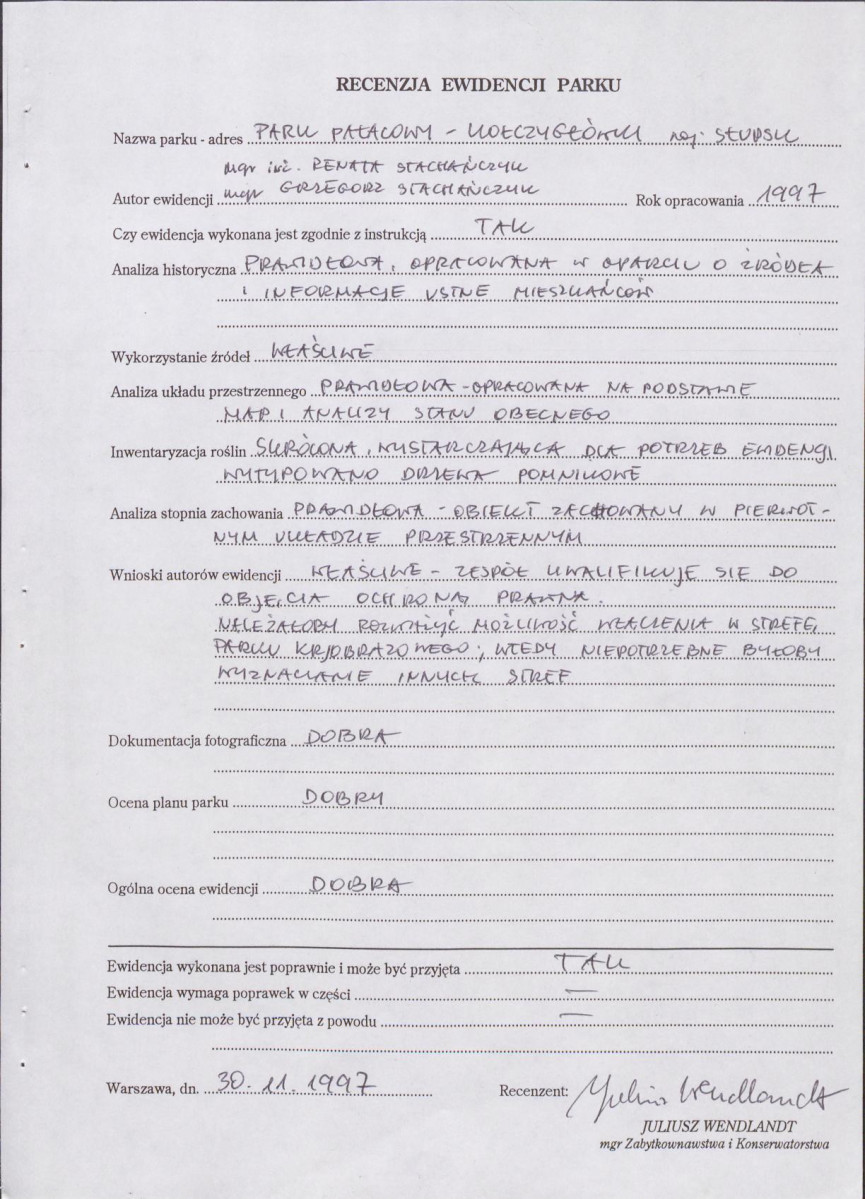 RECENZJA EWIDENCJI PARKU
Nazwa parku - adres PARK PAŁACOWY - KOŁCZYGŁÓWKI woj. SŁUPSK
mgr inż. RENATA STACHAŃCZYK
Autor ewidencji mgr GRZEGORZ STACHAŃCZYK Rok opracowania 1997
Czy ewidencja wykonana jest zgodnie z instrukcją TAK
Analiza historyczna PRAWIDŁOWA, OPRACOWANA W OPARCIU O ŹRÓDŁA
I INFORMACJE USTNE MIESZKAŃCÓW
Wykorzystanie źródeł WŁAŚCIWE
Analiza układu przestrzennego PRAWIDŁOWA - OPRACOWANA NA PODSTAWIE
MAP I ANALIZY STANU OBECNEGO
Inwentaryzacja roślin SKRÓCONA, WYSTARCZAJĄCA DLA POTRZEB EWIDENCJI
WYTYPOWANO DRZEWA POMNIKOWE
Analiza stopnia zachowania PRAWIDŁOWA - OBIEKT ZACHOWANY W PIERWOT-
NYM UKŁADZIE PRZESTRZENNYM
Wnioski autorów ewidencji WŁAŚCIWE - ZESPÓŁ KWALIFIKUJE SIĘ DO
OBJĘCIA OCHRONĄ PRAWNĄ.
NALEŻAŁOBY ROZWAŻYĆ MOŻLIWOŚĆ WŁĄCZENIA W STREFĘ
PARKU KRJOBRAZOWEGO, WTEDY NIEPOTRZEBNE BYŁOBY
WYZNACZANIE INNYCH STREF
Dokumentacja fotograficzna DOBRA
Ocena planu parku DOBRY
Ogólna ocena ewidencji DOBRA
Ewidencja wykonana jest poprawnie i może być przyjęta TAK
Ewidencja wymaga poprawek w części —
Ewidencja nie może być przyjęta z powodu —
Warszawa, dn. 30.11.1997 Recenzent: Juliusz Wendlandt
JULIUSZ WENDLANDT
mgr Zabytkownawstwa i Konserwatorstwa